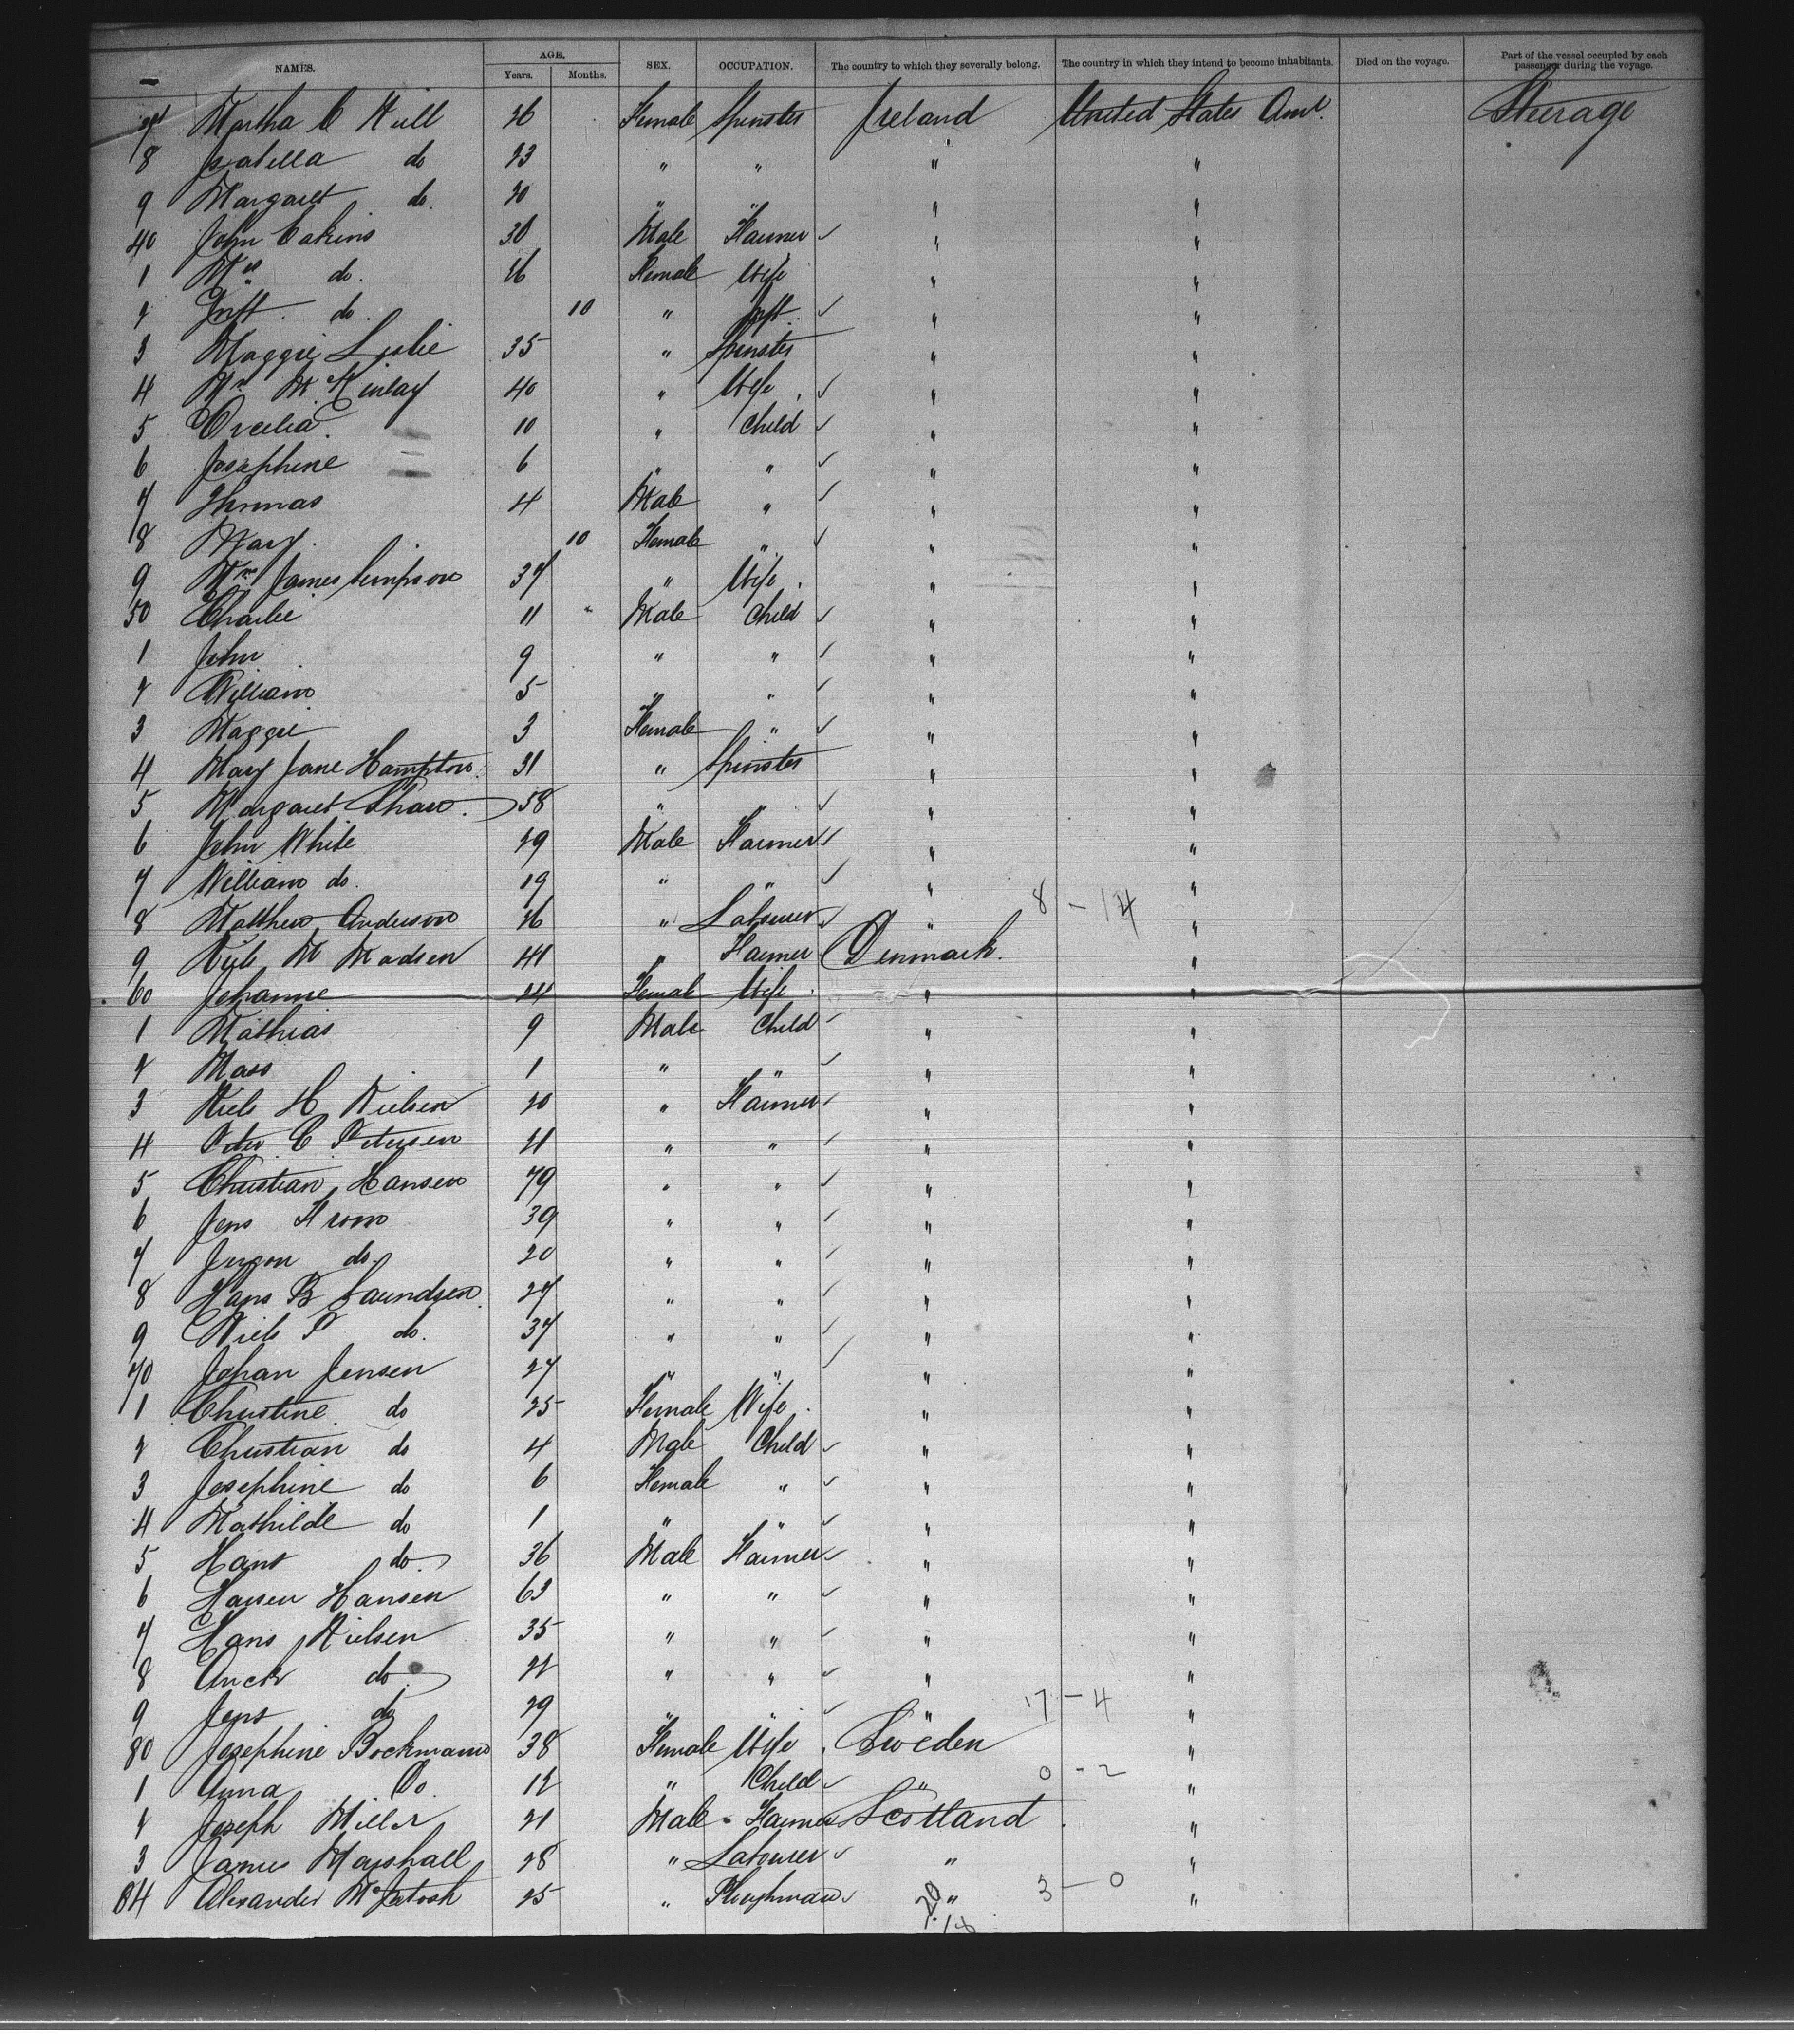 NAMES. AGE. Years. Months. SEX. OCCUPATION. The country to which they severally belong. The country in which they intend to become inhabitants. Died on the voyage. Part of the vessel occupied by each passenger during the voyage.
Martha C 26 Female Spinster Ireland United States Am. Steerage
8 Isabella do 23 " " " "
9 Margaret do. 20 " " " "
40 John Eakins 30 Male Farmer ✓ " "
1 Mrs do. 26 Female Wife " "
2 Inft. do. 10 " Inft. ✓ " "
3 Maggie Leslie 35 " Spinster " "
4 Mrs McKinlay 40 " Wife ✓ " "
5 10 " Child ✓ " "
6 Josephine 6 " " ✓ " "
7 Thomas 4 Male " ✓ " "
8 Mary. 10 Female " ✓ " "
9 Mrs James Simpson 37 " Wife. " "
50 Charlie 11 " Male Child ✓ " "
1 John 9 " " ✓ " "
2 William 5 " " ✓ " "
3 Maggie 3 Female " ✓ " "
4 Mary Jane Hampton. 31 " Spinster " "
5 Margaret Shaw. 58 " " ✓ " "
6 John White 29 Male Farmer ✓ " "
7 William do. 19 " " ✓ " "
8 Matthew Anderson 26 " Labourer ✓ " 8 - 14 "
9 Niels M Madsen 41 " Farmer Denmark. "
60 Johanne 44 Female Wife. " "
1 Mathias 9 Male Child ✓ " "
2 Mass 1 " " ✓ " "
3 Niels H Nielsen 20 " Farmer ✓ " "
4 Peter C Petersen 21 " " ✓ " "
5 Christian Hansen 79 " " ✓ " "
6 Jens 39 " " ✓ " "
7 do. 20 " " ✓ " "
8 Hans B 27 " " ✓ " "
9 Niels P do. 37 " " ✓ " "
70 Johan Jensen 27 " " ✓ " "
1 Christine do 25 Female Wife. " "
2 Christian do 4 Male Child ✓ " "
3 Josephine do 6 Female " ✓ " "
4 Mathilde do 1 " " ✓ " "
5 Hans do. 36 Male Farmer ✓ " "
6 Hansen 63 " " ✓ " "
7 Hans Nielsen 35 " " ✓ " "
8 do. 22 " " ✓ " "
9 Jens do 29 " " ✓ " 17 - 4 "
80 Josephine Bockmann 38 Female Wife. Sweden "
1 Anna Do. 12 " Child ✓ " 0 - 2 "
2 Joseph Miller 21 Male Farmer Scotland. "
3 James Marshall 28 " Labourer ✓ " "
84 Alexander McIntosh 25 " Ploughman ✓ " 3 - 0 "